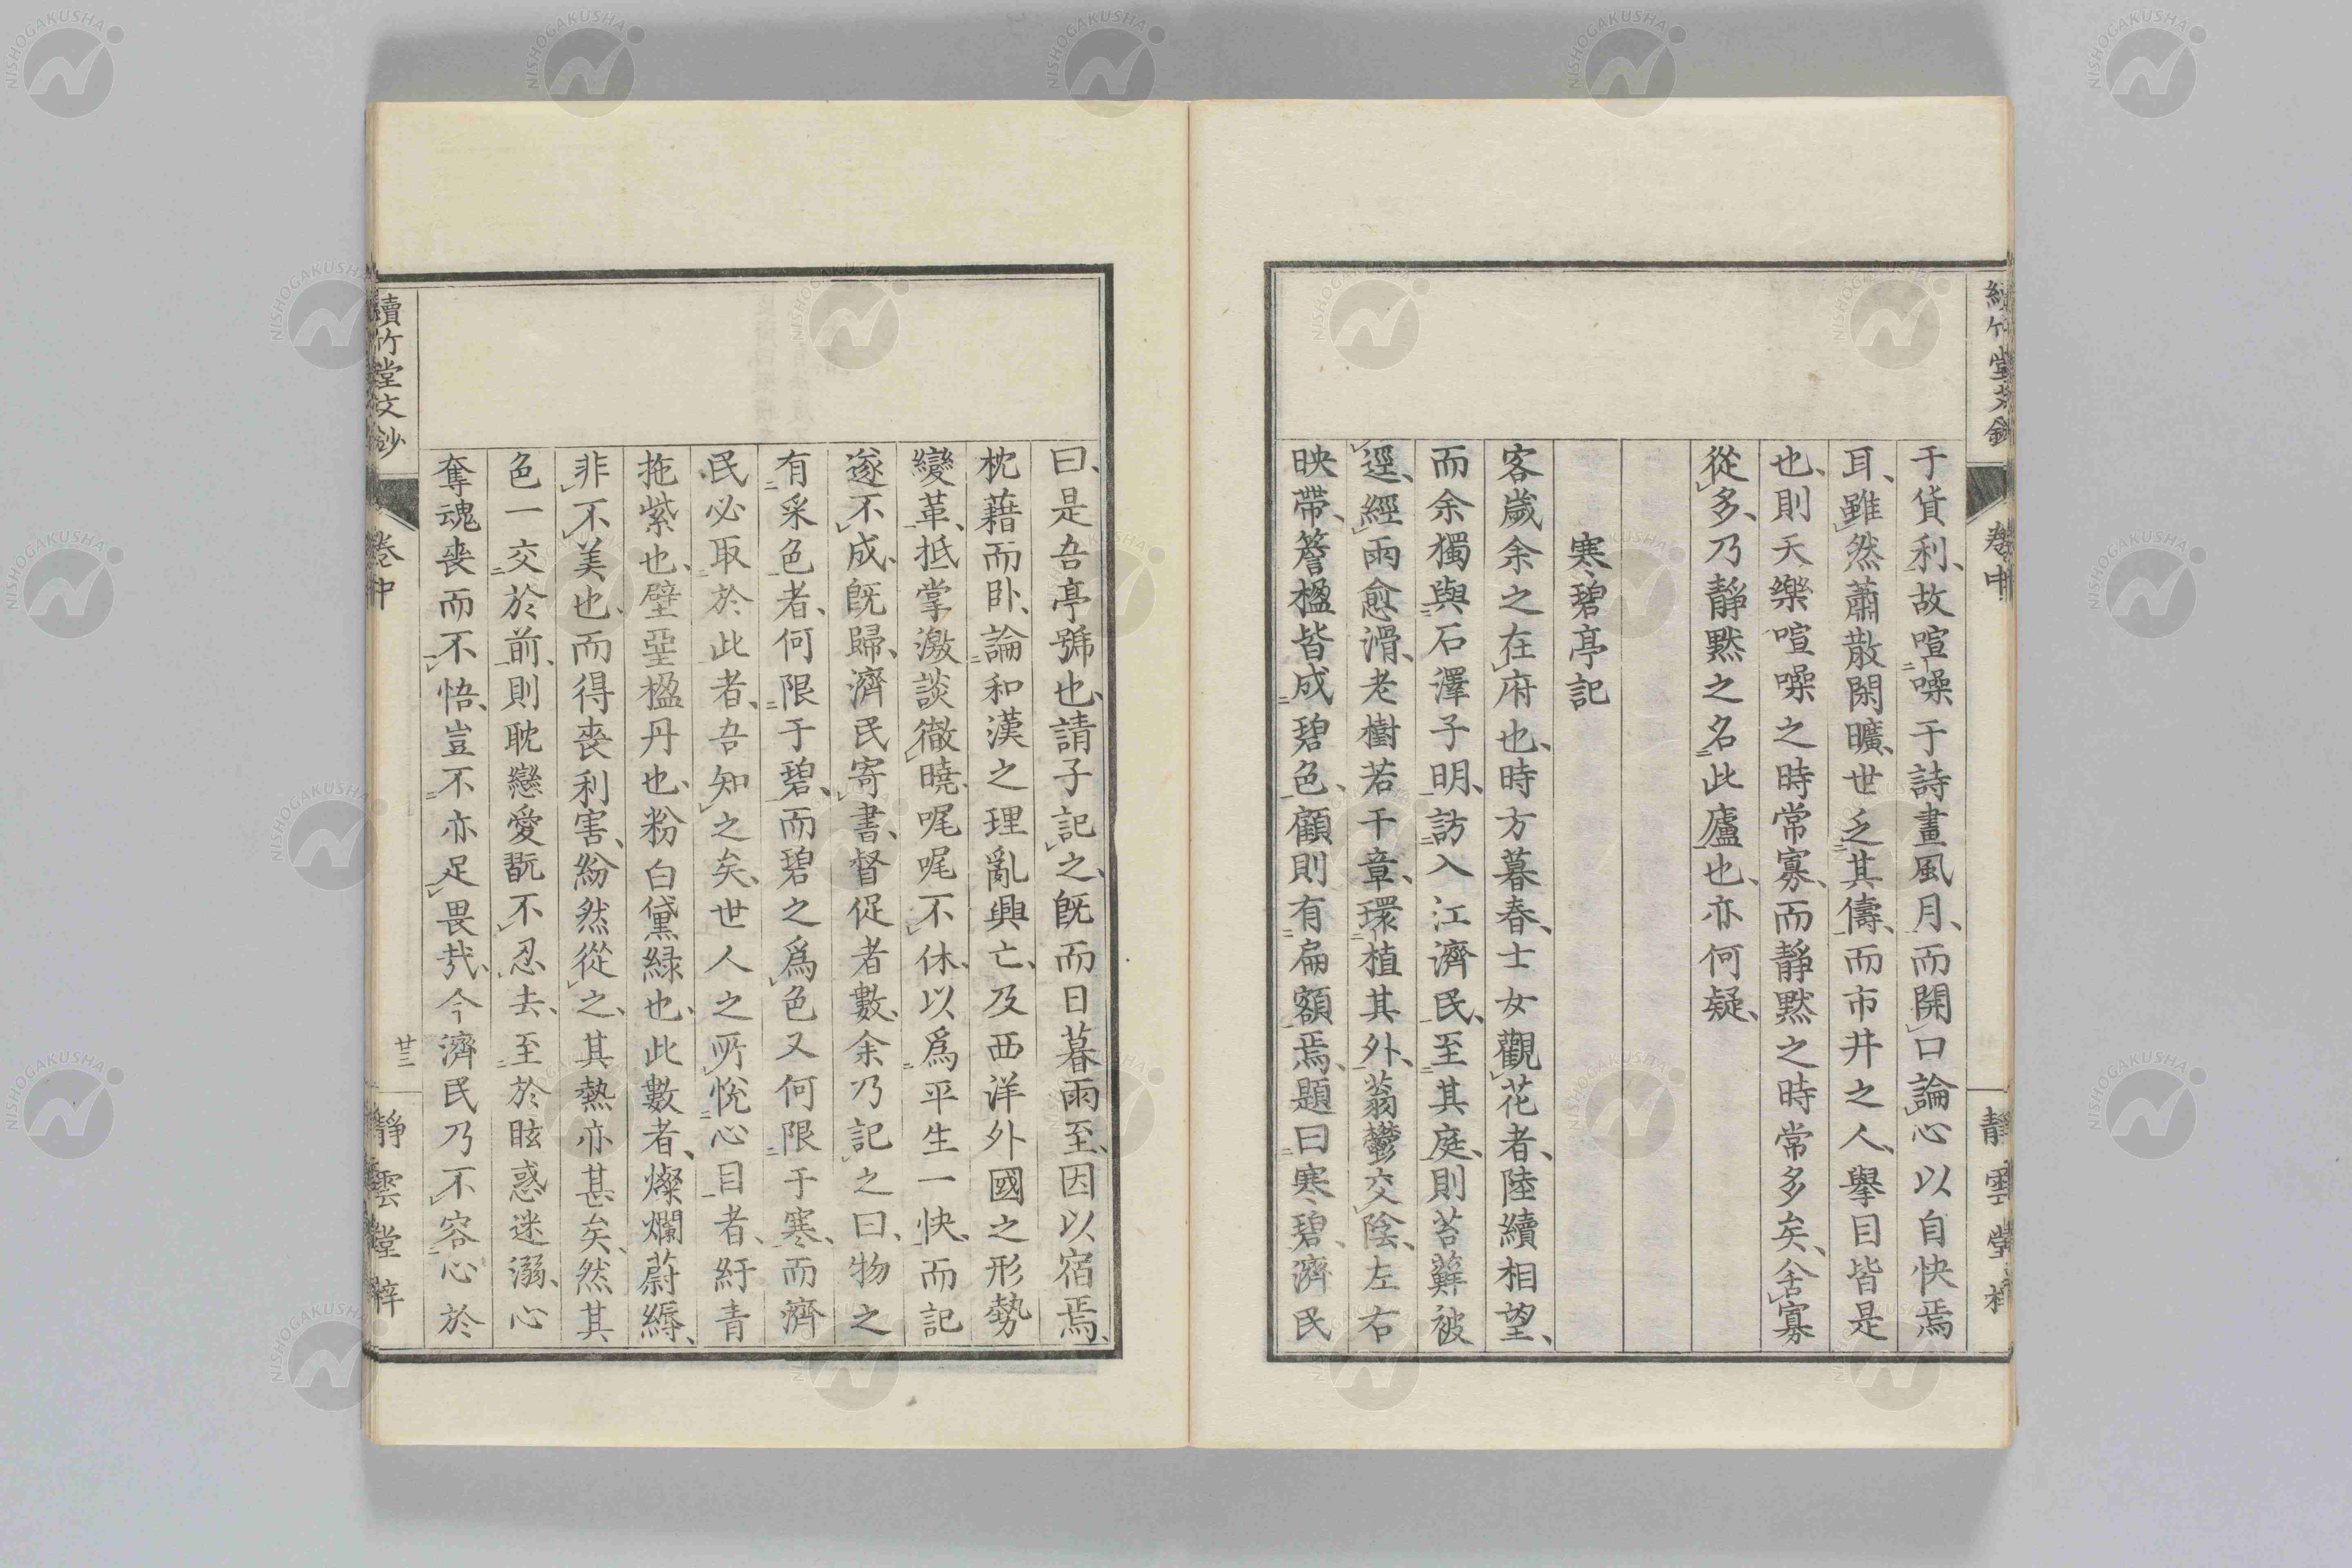 續竹堂文鈔
卷中
靜雲堂梓
于貨利、故喧噪于詩畫風月、而開口論心以自快焉
耳、雖然蕭散閑曠、世乏其儔、而市井之人、擧目皆是
也、則天樂喧噪之時常寡、而靜默之時常多矣、舍寡
從多、乃靜默之名此廬也、亦何疑、
寒碧亭記
客歲余之在府也、時方暮春、士女觀花者、陸續相望、
而余獨與石澤子明、訪入江濟民、至其庭、則苔蘚被
逕、經雨愈滑、老樹若干章、環植其外、蓊鬱交陰、左右
映帶、簷楹皆成碧色、顧則有扁額焉、題曰寒碧、濟民
曰、是吾亭號也、請子記之、既而日暮雨至、因以宿焉、
枕藉而臥、論和漢之理亂興亡、及西洋外國之形勢
變革、抵掌激談徹曉、呢呢不休、以爲平生一快、而記
遂不成、既歸、濟民寄書、督促者數、余乃記之曰、物之
有采色者、何限于碧、而碧之爲色又何限于寒、而濟
民必取於此者、吾知之矣、世人之所悅心目者、紆青
拖紫也、壁堊楹丹也、粉白黛綠也、此數者、燦爛蔚縟、
非不美也、而得喪利害、紛然從之、其熱亦甚矣、然其
色一交於前、則耽戀愛翫、不忍去、至於眩惑迷溺、心
奪魂喪而不悟、豈不亦足畏哉、今濟民乃不容心於
續竹堂文鈔
卷中
廿三
靜雲堂梓
NISHOGAKUSHA